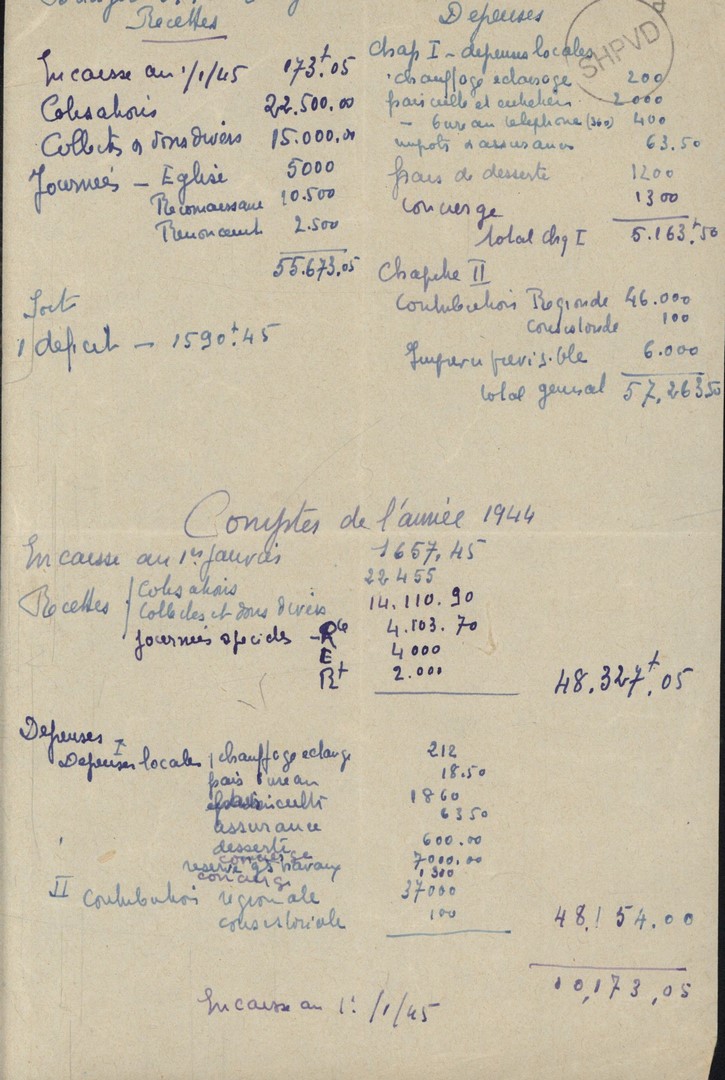 Recettes
En caisse au 1/1/45 173f.05
Cotisations 22.500.00
Collectes et dons divers 15.000.00
Journées - Eglise 5000
Reconnaissance 10.500
Renoncement 2.500
55.673.05
Soit
1 deficit - 1590f.45
Depenses
SHPVD
Chap I - depenses locales
chauffage eclairage 200
frais culte et entretien 2000
- bureau telephone (360) 400
impots et assurances 63.50
frais de desserte 1200
concierge 1300
total chap I 5.163f.50
Chapitre II
Contributions Regionale 46.000
consistoriale 100
Imprévisible 6.000
total general 57.263.50
Comptes de l'année 1944
En caisse au 1er janvier 1657.45
Recettes Cotisations 22455
Collectes et dons divers 14.110.90
journées speciales - Rce 4.103.70
E 4000
Rt 2.000
48.327f.05
Depenses
I Depenses locales chauffage eclairage 212
frais bureau 18.50
culte 1860
assurance 63.50
desserte 600.00
concierge
reserve gds travaux 7000.00
concierge 1300
II Contributions regionale 37000
consistoriale 100
48.154.00
En caisse au 1er/1/45 173,05